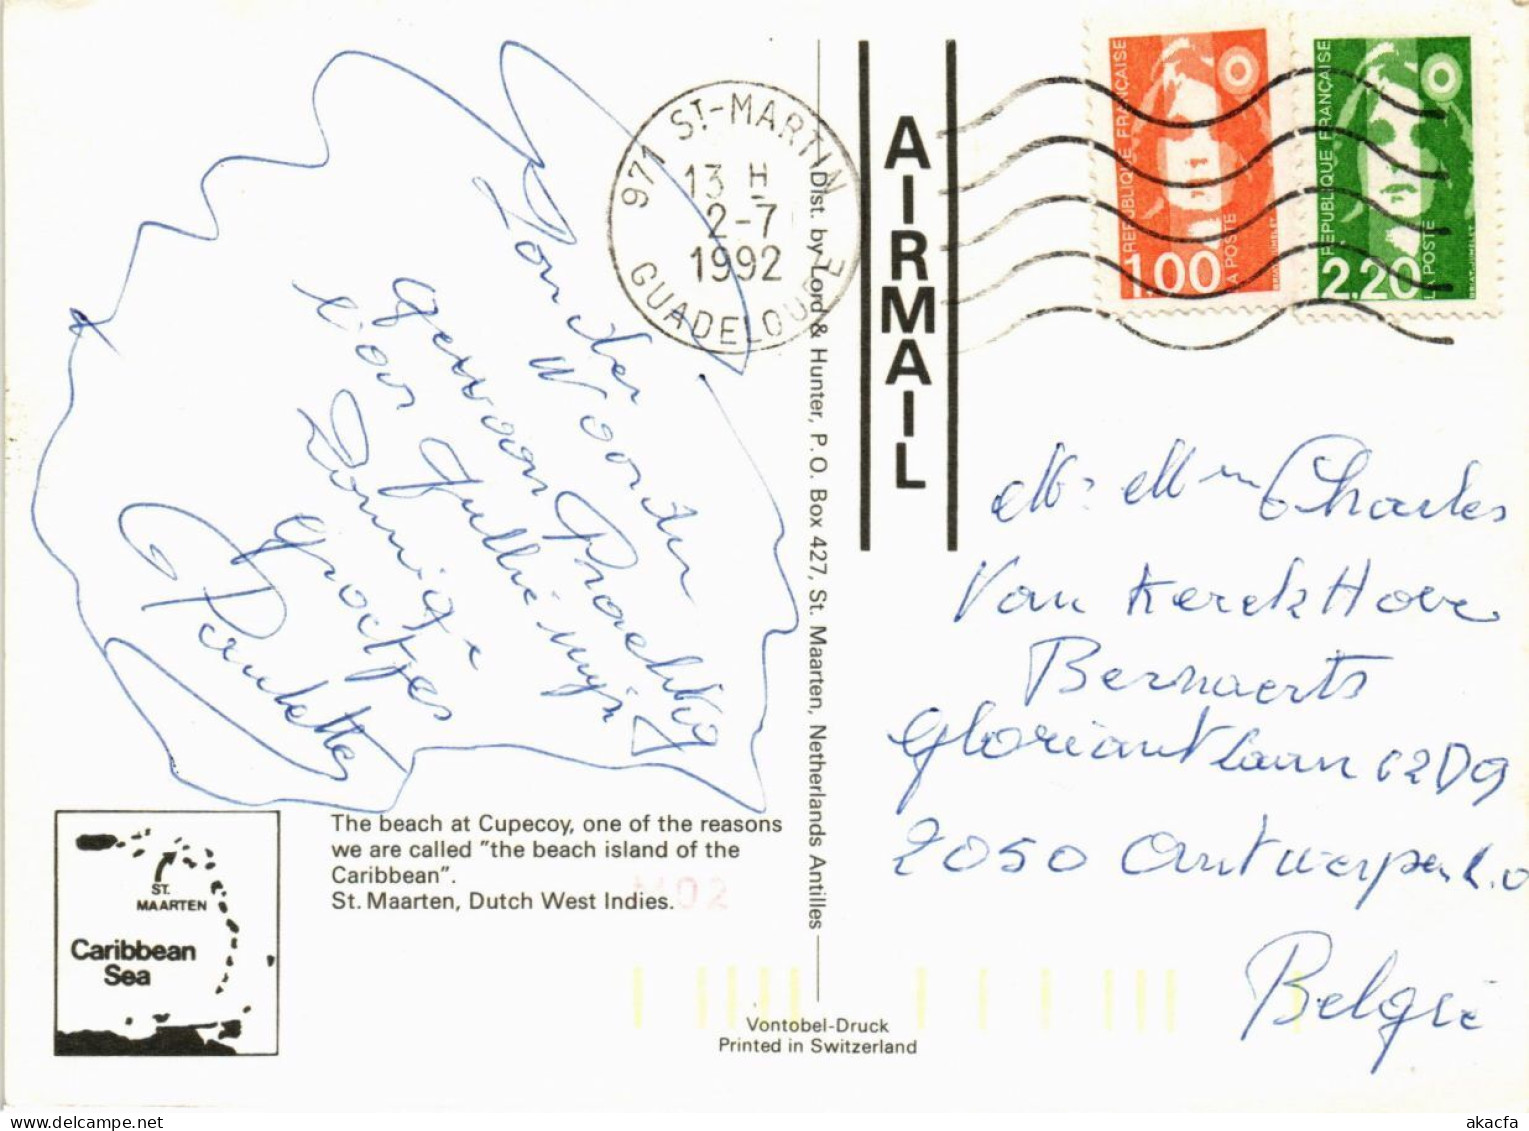 Zonder
Woorden
gewoon Prachtig
Voor Jullie mijn
Zonnige
groetjes
Paulette
971 ST-MARTIN
13 H
2-7
1992
GUADELOUPE
AIRMAIL
REPUBLIQUE FRANÇAISE
1.00
LA POSTE
REPUBLIQUE FRANÇAISE
2.20
LA POSTE
Dist. by Lord & Hunter, P.O. Box 427, St. Maarten, Netherlands Antilles
Mr Mme Charles
Van Kerckhove
Bernaerts
Gloriantlaan 62D9
2050 Antwerpen L.O
België
The beach at Cupecoy, one of the reasons
we are called "the beach island of the
Caribbean".
St. Maarten, Dutch West Indies.
ST.
MAARTEN
Caribbean
Sea
Vontobel-Druck
Printed in Switzerland
akacfa